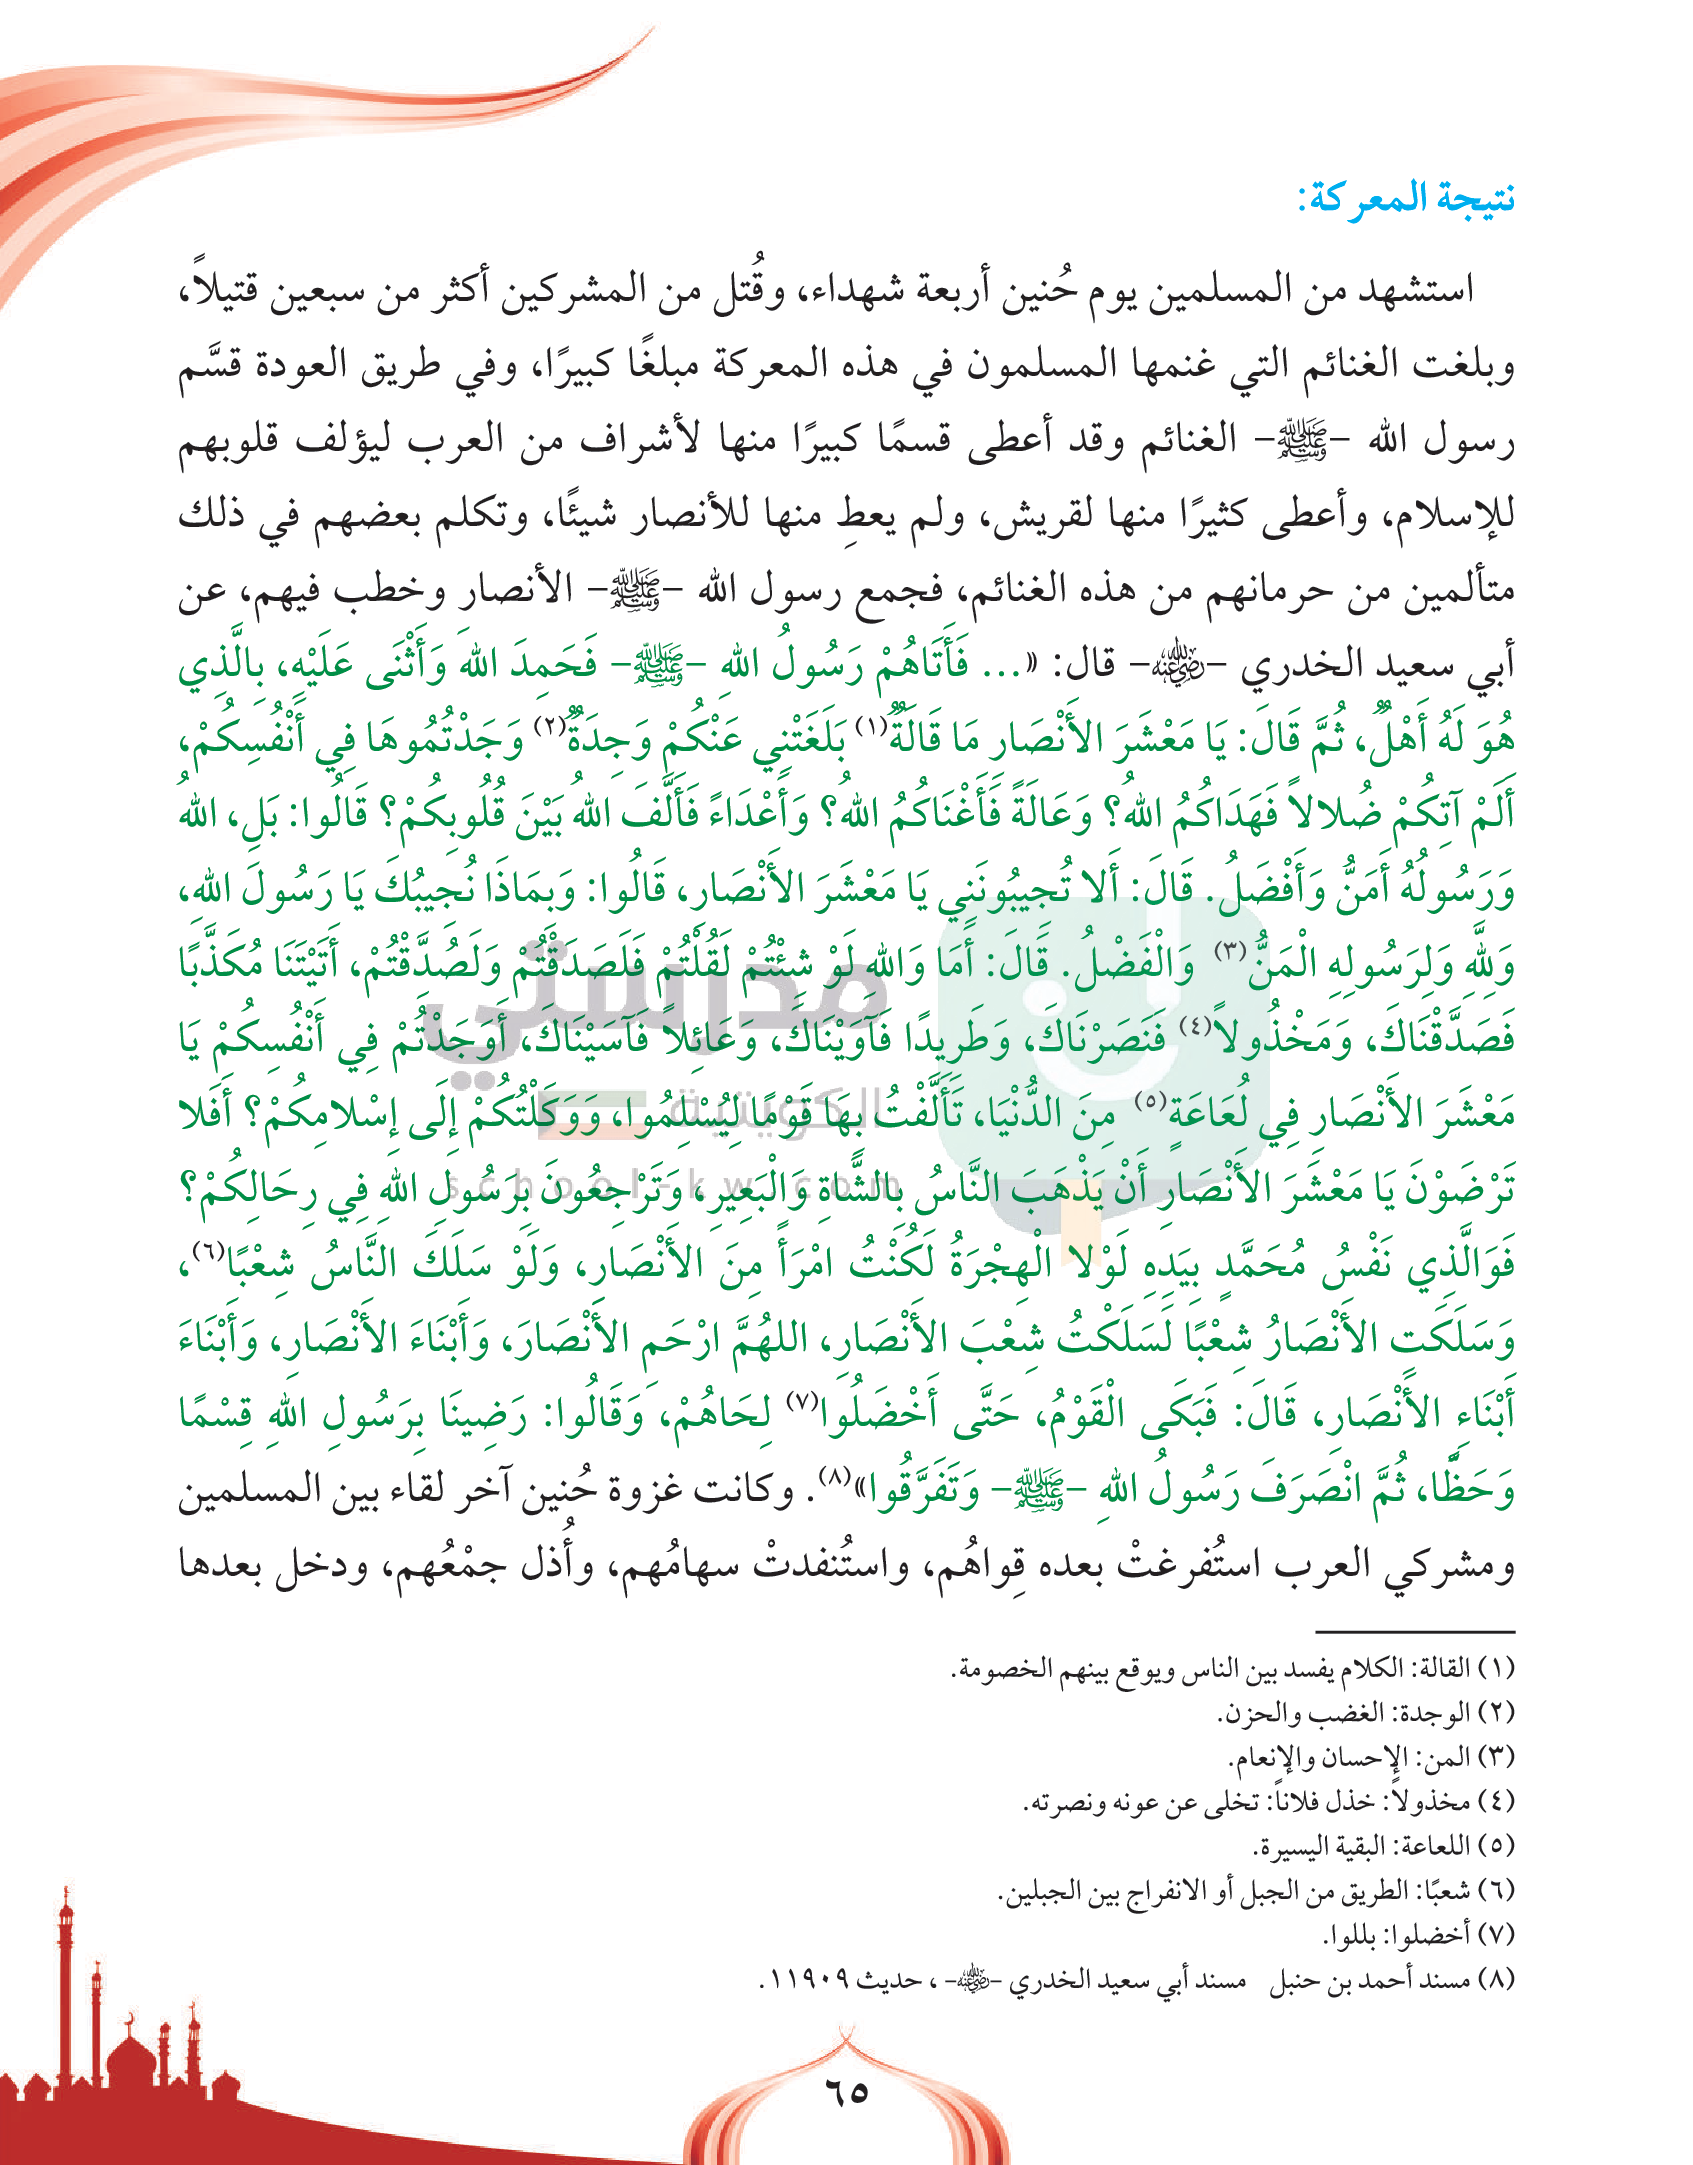 نتيجة المعركة:
استشهد من المسلمين يوم حُنين أربعة شهداء، وقُتل من المشركين أكثر من سبعين قتيلاً،
وبلغت الغنائم التي غنمها المسلمون في هذه المعركة مبلغًا كبيرًا، وفي طريق العودة قسَّم
رسول الله –ﷺ– الغنائم وقد أعطى قسمًا كبيرًا منها لأشراف من العرب ليؤلف قلوبهم
للإسلام، وأعطى كثيرًا منها لقريش، ولم يعطِ منها للأنصار شيئًا، وتكلم بعضهم في ذلك
متألمين من حرمانهم من هذه الغنائم، فجمع رسول الله –ﷺ– الأنصار وخطب فيهم، عن
أبي سعيد الخدري –رضي الله عنه– قال: «... فَأَتَاهُمْ رَسُولُ اللهِ –ﷺ– فَحَمِدَ اللهَ وَأَثْنَى عَلَيْهِ، بِالَّذِي
هُوَ لَهُ أَهْلٌ، ثُمَّ قَالَ: يَا مَعْشَرَ الأَنْصَارِ مَا قَالَةٌ(١) بَلَغَتْنِي عَنْكُمْ وَجِدَةٌ(٢) وَجَدْتُمُوهَا فِي أَنْفُسِكُمْ،
أَلَمْ آتِكُمْ ضُلالاً فَهَدَاكُمُ اللهُ؟ وَعَالَةً فَأَغْنَاكُمُ اللهُ؟ وَأَعْدَاءً فَأَلَّفَ اللهُ بَيْنَ قُلُوبِكُمْ؟ قَالُوا: بَلِ، اللهُ
وَرَسُولُهُ أَمَنُّ وَأَفْضَلُ. قَالَ: أَلا تُجِيبُونَنِي يَا مَعْشَرَ الأَنْصَارِ، قَالُوا: وَبِمَاذَا نُجِيبُكَ يَا رَسُولَ اللهِ،
وَلِلَّهِ وَلِرَسُولِهِ الْمَنُّ(٣) وَالْفَضْلُ. قَالَ: أَمَا وَاللهِ لَوْ شِئْتُمْ لَقُلْتُمْ فَلَصَدَقْتُمْ وَلَصُدِّقْتُمْ، أَتَيْتَنَا مُكَذَّبًا
فَصَدَّقْنَاكَ، وَمَخْذُولاً(٤) فَنَصَرْنَاكَ، وَطَرِيدًا فَآوَيْنَاكَ، وَعَائِلاً فَآسَيْنَاكَ، أَوَجَدْتُمْ فِي أَنْفُسِكُمْ يَا
مَعْشَرَ الأَنْصَارِ فِي لُعَاعَةٍ(٥) مِنَ الدُّنْيَا، تَأَلَّفْتُ بِهَا قَوْمًا لِيُسْلِمُوا، وَوَكَلْتُكُمْ إِلَى إِسْلامِكُمْ؟ أَفَلا
تَرْضَوْنَ يَا مَعْشَرَ الأَنْصَارِ أَنْ يَذْهَبَ النَّاسُ بِالشَّاةِ وَالْبَعِيرِ، وَتَرْجِعُونَ بِرَسُولِ اللهِ فِي رِحَالِكُمْ؟
فَوَالَّذِي نَفْسُ مُحَمَّدٍ بِيَدِهِ لَوْلا الْهِجْرَةُ لَكُنْتُ امْرَأً مِنَ الأَنْصَارِ، وَلَوْ سَلَكَ النَّاسُ شِعْبًا(٦)،
وَسَلَكَتِ الأَنْصَارُ شِعْبًا لَسَلَكْتُ شِعْبَ الأَنْصَارِ، اللهُمَّ ارْحَمِ الأَنْصَارَ، وَأَبْنَاءَ الأَنْصَارِ، وَأَبْنَاءَ
أَبْنَاءِ الأَنْصَارِ، قَالَ: فَبَكَى الْقَوْمُ، حَتَّى أَخْضَلُوا(٧) لِحَاهُمْ، وَقَالُوا: رَضِينَا بِرَسُولِ اللهِ قِسْمًا
وَحَظًّا، ثُمَّ انْصَرَفَ رَسُولُ اللهِ –ﷺ– وَتَفَرَّقُوا»(٨). وكانت غزوة حُنين آخر لقاء بين المسلمين
ومشركي العرب استُفرغتْ بعده قِواهُم، واستُنفدتْ سهامُهم، وأُذل جمْعُهم، ودخل بعدها
مدرستي
الكويتية
school-kw.com
(١) القالة: الكلام يفسد بين الناس ويوقع بينهم الخصومة.
(٢) الوجدة: الغضب والحزن.
(٣) المن: الإحسان والإنعام.
(٤) مخذولاً: خذل فلاناً: تخلى عن عونه ونصرته.
(٥) اللعاعة: البقية اليسيرة.
(٦) شعبًا: الطريق من الجبل أو الانفراج بين الجبلين.
(٧) أخضلوا: بللوا.
(٨) مسند أحمد بن حنبل مسند أبي سعيد الخدري –رضي الله عنه– ، حديث ١١٩٠٩.
٦٥